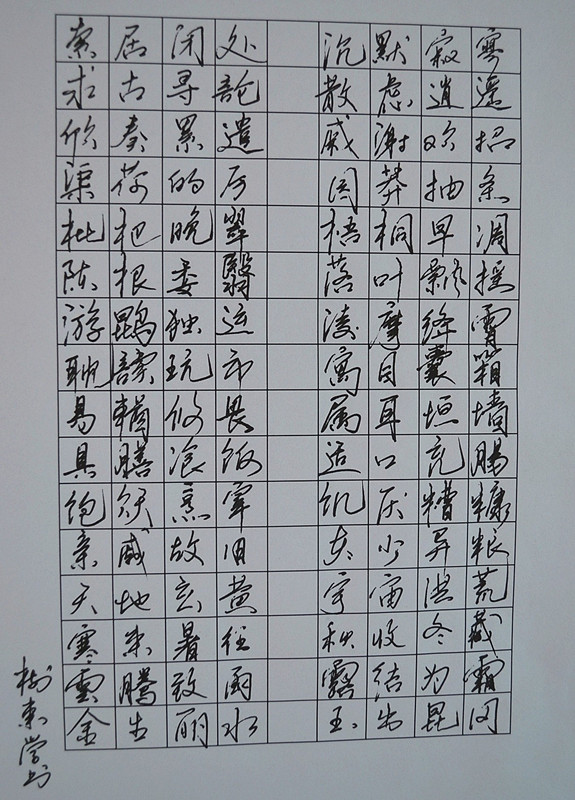 索居闲处 沉默寂寥
求古寻論 散虑逍遥
欣奏累遣 戚谢欢招
渠荷的历 园莽抽条
枇杷晚翠 梧桐早凋
陈根委翳 落叶飘摇
游鹍独运 凌摩绛霄
耽讀玩市 寓目囊箱
易輶攸畏 属耳垣墙
具膳飡饭 适口充肠
饱饫烹宰 饥厌糟糠
亲戚故旧 老少异粮
天地玄黄 宇宙洪荒
寒来暑往 秋收冬藏
雲腾致雨 露结为霜
金生丽水 玉出昆冈
树东学书